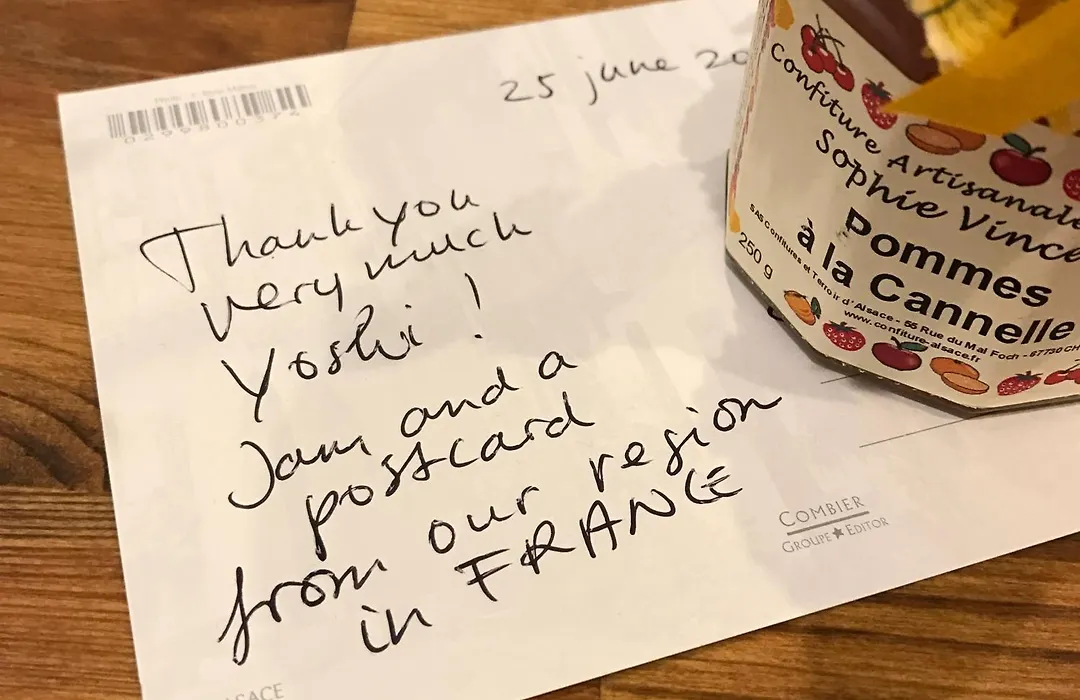 25 june 20
0299800574
Thank you
very much
Yoshi !
Jam and a
postcard
from our region
in FRANCE
COMBIER
GROUPE ★ EDITOR
Confiture Artisanale
Sophie Vince
Pommes
à la Cannelle
250 g
SAS Confitures et Terroir d'Alsace - 55 Rue du Mal Foch - 67730 CH
www.confiture-alsace.fr